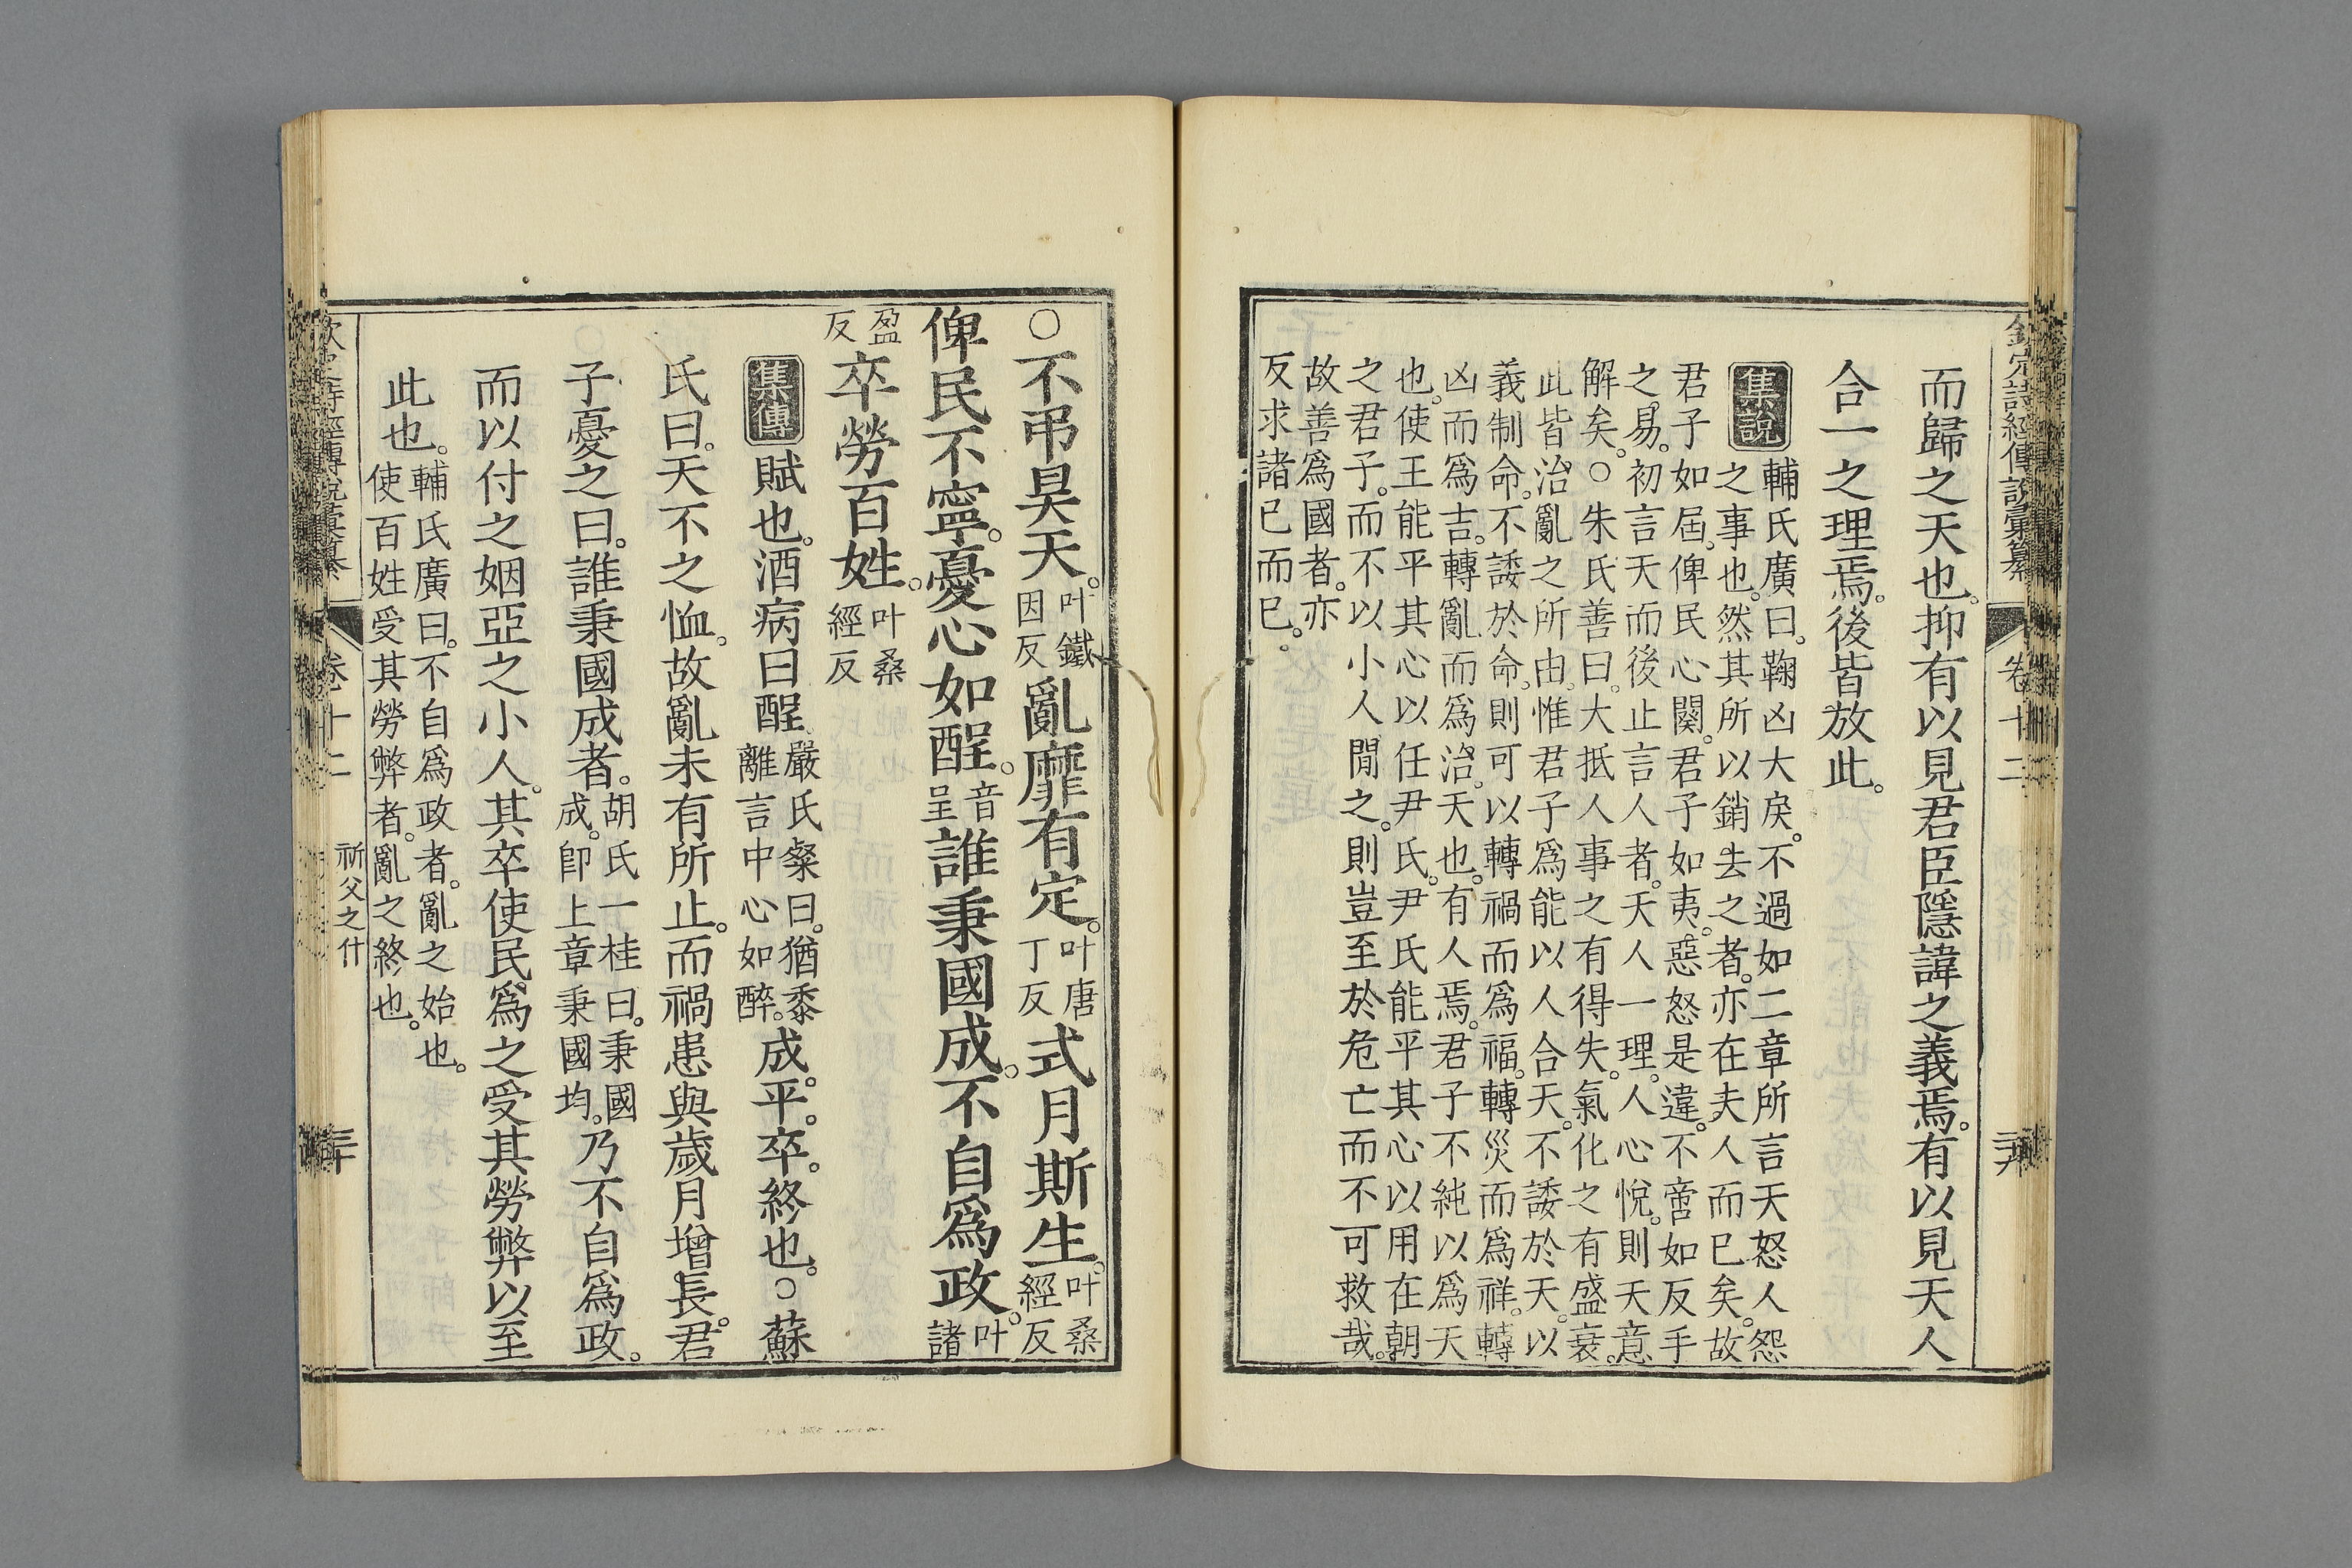 欽定詩經傳說彙纂 卷十二
而歸之天也。抑有以見君臣隱諱之義焉。有以見天人
合一之理焉。後皆放此。
集說 輔氏廣曰。鞠凶大戾。不過如二章所言天怒人怨
之事也。然其所以銷去之者。亦在夫人而已矣。故
君子如屆。俾民心闋。君子如夷。惡怒是違。不啻如反手
之易。初言天而後止言人者。天人一理。人心悅。則天意
解矣。○朱氏善曰。大抵人事之有得失。氣化之有盛衰。
此皆治亂之所由。惟君子爲能以人合天。不諉於天。以
義制命。不諉於命。則可以轉禍而爲福。轉災而爲祥。轉
凶而爲吉。轉亂而爲治。天也。有人焉。君子不純以爲天
也。使王能平其心以任尹氏。尹氏能平其心以用在朝
之君子。而不以小人閒之。則豈至於危亡而不可救哉。
故善爲國者。亦
反求諸已而已。
○不弔昊天。叶鐵因反亂靡有定。叶唐丁反式月斯生。叶桑經反
俾民不寧。憂心如酲。音呈誰秉國成。不自爲政。叶諸
盈反卒勞百姓。叶桑經反
集傳 賦也。酒病曰酲。嚴氏粲曰。猶黍離言中心如醉。成。平。卒。終也。○蘇
氏曰。天不之恤。故亂未有所止。而禍患與歲月增長。君
子憂之曰。誰秉國成者。胡氏一桂曰。秉國成。卽上章秉國均。乃不自爲政。
而以付之姻亞之小人。其卒使民爲之受其勞弊以至
此也。輔氏廣曰。不自爲政者。亂之始也。使百姓受其勞弊者。亂之終也。
卷十二 祈父之什 三十